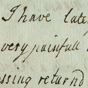 I have late
very painfull
ssing returnd